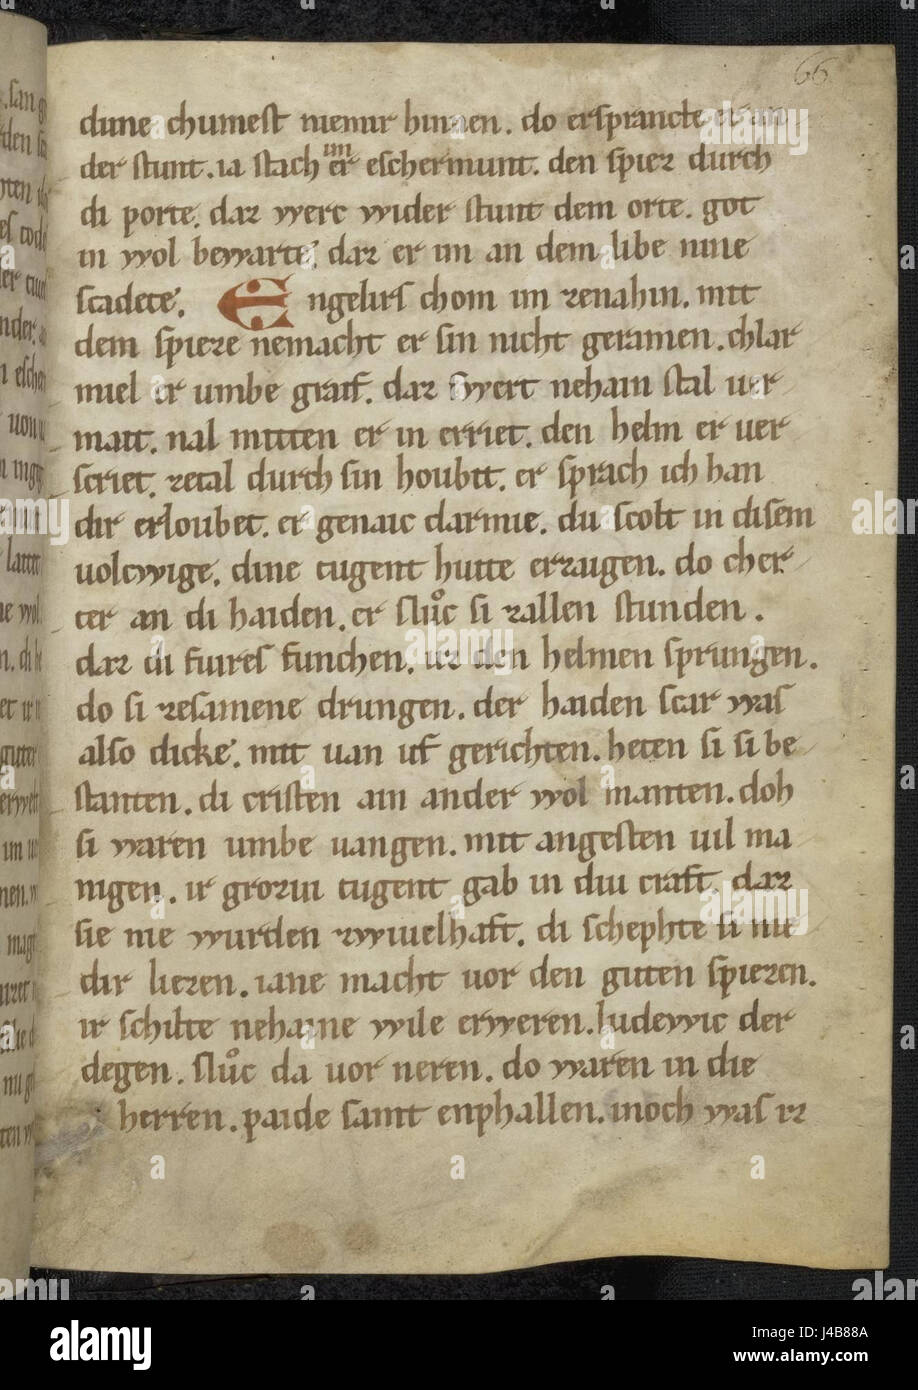 66
dune chumest niemir hinnen. do ersprancte er an
der stunt. ia stach im er eschermunt. den spiez durch
di porte. daz werc wider stunt dem orte. got
in wol bewarte. daz er im an dem libe nine
scadete. Engelirs chom im zenahin. mit
dem spieze nemacht er sin nicht geramen. chlar
miel er umbe graif. daz swert nehain stal uer
mait. nal mitten er in erriet. den helm er uer
scriet. zetal durch sin houbit. er sprach ich han
dir erloubet. er genaic darnie. du scolt in disem
uolcwige. dine tugent hiute erzaigen. do cher
ter an di haiden. er sluͦc si zallen stunden.
daz di fuires funchen. uz den helmen sprungen.
do si zesamene drungen. der haiden scar was
also dicke. mit uan uf gerichten. heten si si be
stanten. di cristen ain ander wol manten. doh
si waren umbe uangen. mit angesten uil ma
nigen. ir groziu tugent gab in diu craft. daz
sie nie wurden zwiuelhaft. di schephte si nie
dir liezen. iane macht uor den guten spiezen.
ir schilte nehaine wile erweren. ludewic der
degen. sluͦc da uor neren. do waren in die
herren. paide samt enphallen. inoch was iz
alamy
Image ID: J4B88A
www.alamy.com